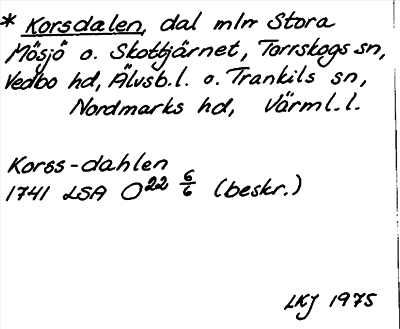 * Korsdalen, dal mlm Stora
Mösjö o. Skottjärnet, Torrskogs sn,
Vedbo hd, Älvsb.l. o. Trankils sn,
Nordmarks hd, Värml.l.
Korss-dahlen
1741 LSA O22 6/6 (beskr.)
LKJ 1975